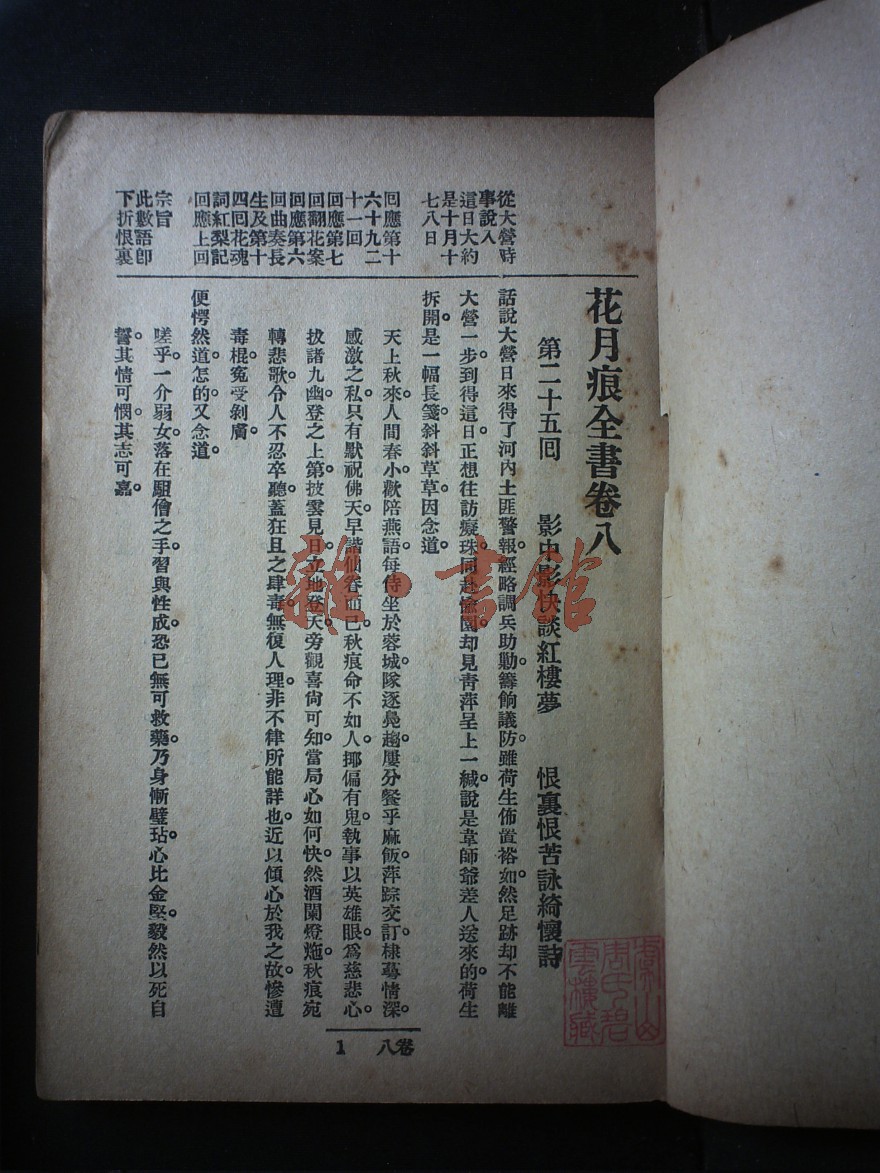 花月痕全書卷八
第二十五回 影中影快談紅樓夢 恨裏恨苦詠綺懷詩
話說大營日來得了河內土匪警報。經略調兵助勦。籌餉議防。雖荷生佈置裕如。然足跡却不能離
大營一步。到得這日。正想往訪癡珠。同赴愉園。却見青萍呈上一緘。說是韋師爺差人送來的。荷生
拆開。是一幅長箋。斜斜草草。因念道。
天上秋來。人間春小。歡陪燕語。每侍坐於蓉城。隊逐鳧趨。屢分餐乎麻飯。萍踪交訂。棣萼情深。
感激之私。只有默祝佛天。早諧仙眷而已。秋痕命不如人。揶偏有鬼。執事以英雄眼。爲慈悲心。
拔諸九幽。登之上第。披雲見日。立地登天。旁觀喜尙可知。當局心如何快。然酒闌燈炧。秋痕宛
轉悲歌。令人不忍卒聽。蓋狂且之肆毒。無復人理。非不律所能詳也。近以傾心於我之故。慘遭
毒棍。寃受剝膚。
便愕然道。怎的。又念道。
嗟乎。一介弱女。落在駔儈之手。習與性成。恐已無可救藥。乃身慚璧玷。心比金堅。毅然以死自
誓。其情可憫。其志可嘉。
從大營時
事說入
這日大約
是十月十
七八日
回應第十
六十九二
十一回
回應第七
回翻花案
回應第六
回曲奏長
生及第十
四回花魂
詞紅梨記
回應上回
宗旨
此數語卽
下折恨裏
卷八
1
雜·書館
周氏碧
雲樓藏